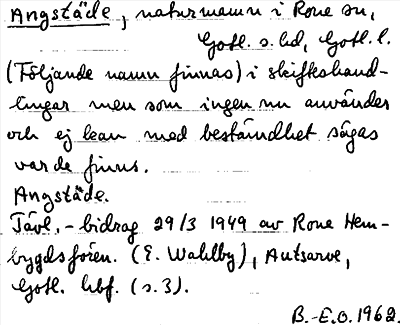 Angstäde, naturnamn i Rone sn,
Gotl. s. hd, Gotl. l.
(Följande namn finnas) i skiftshand-
lingar men som ingen nu använder
och ej kan med bestämdhet sägas
var de finns.
Angstäde.
Tävl.-bidrag 29/3 1949 av Rone Hem-
bygdsfören. (E. Wahlby), Autsarve,
Gotl. hbf. (s. 3).
B.-E.O. 1962.